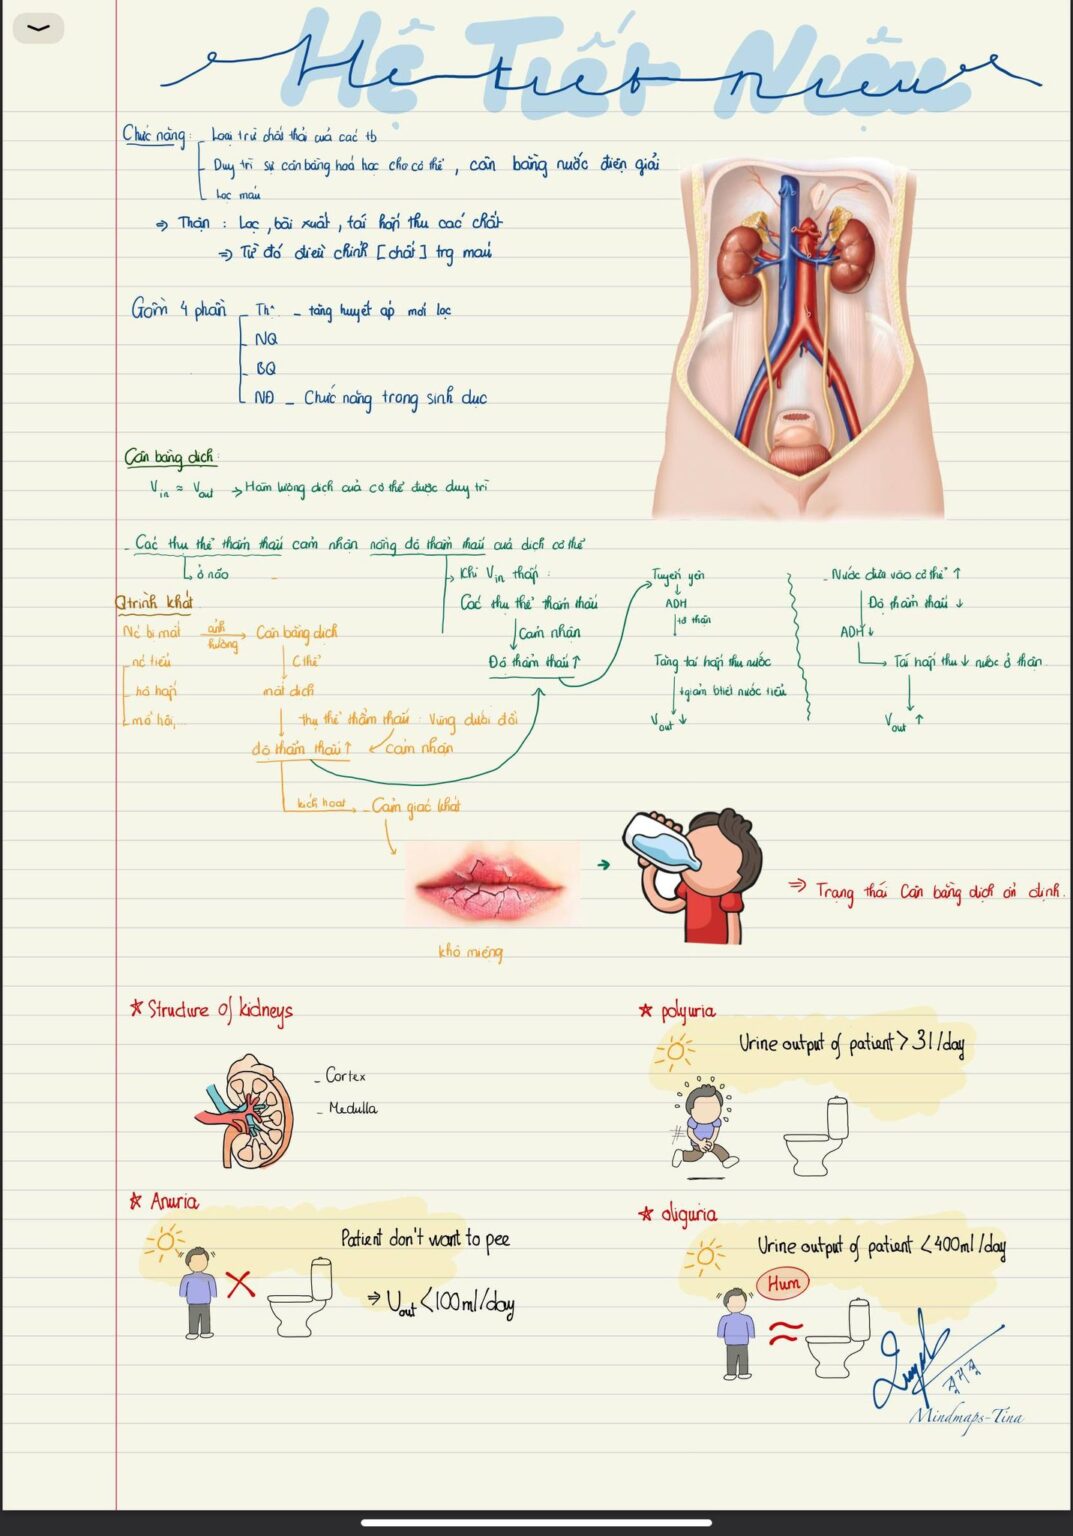 Hệ Tiết Niệu
Hệ tiết niệu
Chức năng: Loại trừ chất thải của các tb
Duy trì sự cân bằng hoá học cho cơ thể, cân bằng nước điện giải
Lọc máu
⇒ Thận : Lọc, bài xuất, tái hấp thu các chất
⇒ Từ đó điều chỉnh [chất] trg máu
Gồm 4 phần
Th^ - tăng huyết áp mới lọc
NQ
BQ
NĐ - Chức năng trong sinh dục
Cân bằng dịch:
Vin ≈ Vout → Hàm lượng dịch của cơ thể được duy trì
- Các thụ thể thẩm thấu cảm nhận nồng độ thẩm thấu của dịch cơ thể
ở não
Khi Vin thấp :
Các thụ thể thẩm thấu
Cảm nhận
Độ thẩm thấu ↑
Tuyến yên
ADH
tới thận
Tăng tái hấp thu nước
+giảm btiết nước tiểu
Vout ↓
- Nước đưa vào cơ thể ↑
Độ thẩm thấu ↓
ADH ↓
Tái hấp thu ↓ nước ở thận.
Vout ↑
Qtrình khát
Nc bị mất ảnh hưởng Cân bằng dịch
nc tiểu
hô hấp
mồ hôi,...
Cthể
mất dịch
thụ thể thẩm thấu : Vùng dưới đồi
độ thẩm thấu ↑ cảm nhận
kích hoạt - Cảm giác khát
khô miệng
⇒ Trạng thái Cân bằng dịch ổn định.
★ Structure of kidneys
- Cortex
- Medulla
★ polyuria
Urine output of patient > 3l/day
★ Anuria
Patient don't want to pee
⇒ Vout < 100ml/day
★ oliguria
Urine output of patient < 400ml/day
Hum
Mindmaps-Tina